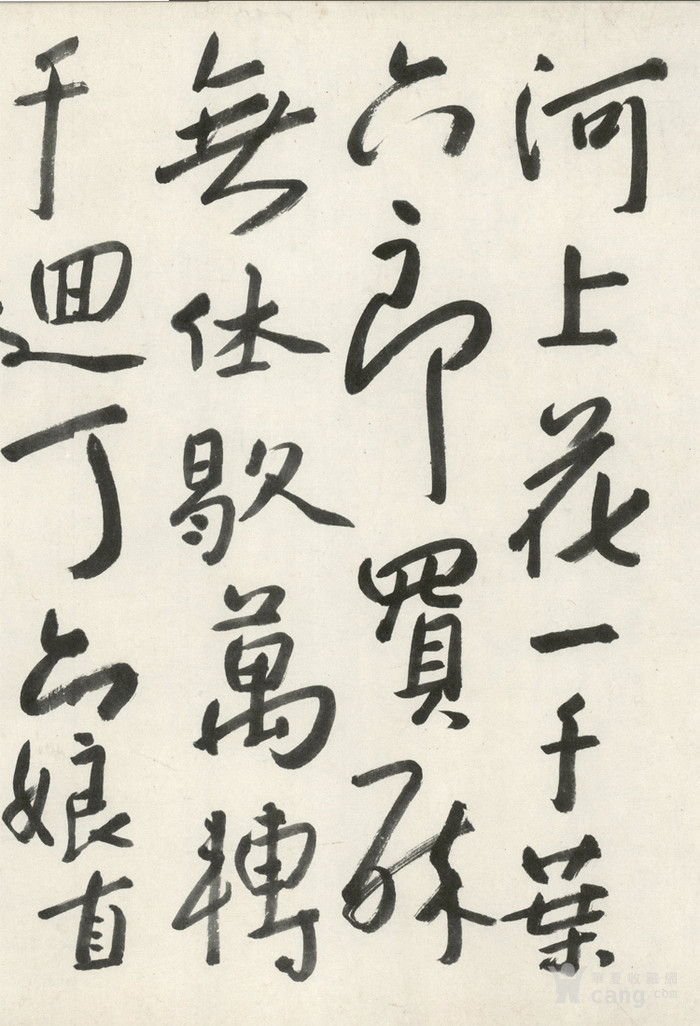 河上花一千葉
六郎買醉
無休歇萬轉
千迴丁六娘直
華夏收藏網
cang.com